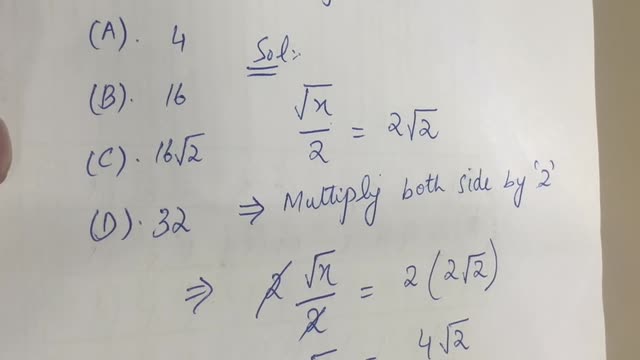 (A). 4
(B). 16
(C). 16√2
(D). 32
Sol:
√x/2 = 2√2
⇒ Multiply both side by '2'
⇒ 2 √x/2 = 2(2√2)
= 4√2